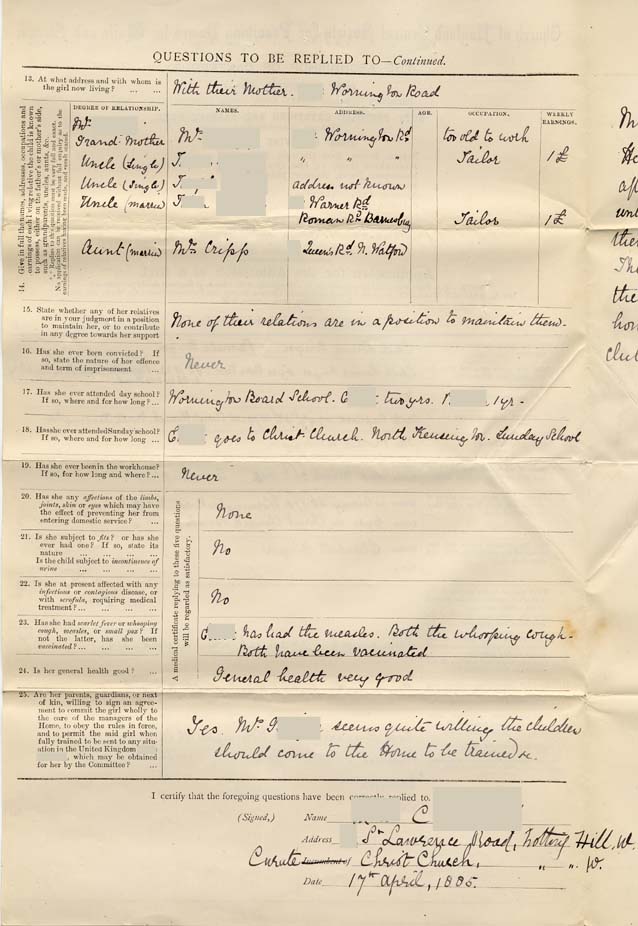 QUESTIONS TO BE REPLIED TO—Continued.
13. At what address and with whom is
the girl now living? ... ...
With their Mother. Wornington Road
14. Give in full the names, addresses, occupations and
earnings of each living relative the child is known
to possess, either on the father's or mother's side,
such as grandparents, uncles, aunts, &c.
N.B. Replies to this question must be very full and exact.
No application can be received without full enquiry as to the
earnings of relatives having been made, and result stated.
DEGREE OF RELATIONSHIP. NAMES. ADDRESS. AGE. OCCUPATION. WEEKLY EARNINGS.
Grand Mother Mrs Wornington Rd too old to work
Uncle (Single) T. " " " Tailor 1£
Uncle (Single) J. address not known
Uncle (married) J. Warner Rd
Roman Rd Barnesbury Tailor 1£
Aunt (married) Mrs Cripps Queen's Rd. N. Watford
15. State whether any of her relatives
are in your judgment in a position
to maintain her, or to contribute
in any degree towards her support
None of their relations are in a position to maintain them.
16. Has she ever been convicted? If
so, state the nature of her offence
and term of imprisonment ...
Never
17. Has she ever attended day school?
If so, where and for how long? ...
Wornington Board School. E two yrs. 1yr.
18. Has she ever attended Sunday school?
If so, where and for how long ...
E goes to Christ Church. North Kensington. Sunday School
19. Has she ever been in the workhouse?
If so, for how long and where? ...
Never
A medical certificate replying to these five questions
will be regarded as satisfactory.
20. Has she any affections of the limbs,
joints, skin or eyes which may have
the effect of preventing her from
entering domestic service? ...
None
21. Is she subject to fits? or has she
ever had one? If so, state its
nature ... ... ... ...
Is the child subject to incontinence of
urine ... ... ... ...
No
22. Is she at present affected with any
infectious or contagious disease, or
with scrofula, requiring medical
treatment? ... ... ... ...
No
23. Has she had scarlet fever or whooping
cough, measles, or small pox? If
not the latter, has she been
vaccinated? ... ... ... ...
E has had the measles. Both the whooping cough.
Both have been vaccinated
24. Is her general health good? ...
General health very good
25. Are her parents, guardians, or next
of kin, willing to sign an agree-
ment to commit the girl wholly to
the care of the managers of the
Home, to obey the rules in force,
and to permit the said girl when
fully trained to be sent to any situ-
ation in the United Kingdom
, which may be obtained
for her by the Committee? ...
Yes. Mrs seems quite willing the children
should come to the Home to be trained &c.
I certify that the foregoing questions have been correctly replied to.
(Signed,) Name C
Address St Lawrence Road, Notting Hill, W.
Curate Incumbent of Christ Church, " " W.
Date 17th April, 1885.